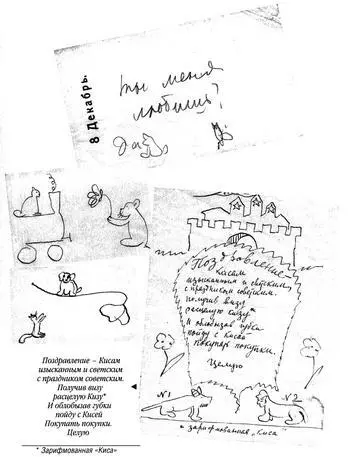 8 Декабрь.
Ты меня
любишь?
Да
Поздравление
Кисам
изысканным и светским
с праздником советским.
Получив визу
расцелую Кизу*
И облобызав губки
пойду с Кисой
Покупать покупки.
Целую
N1
N2
* зарифмованная „Киса"
Поздравление – Кисам
изысканным и светским
с праздником советским.
Получив визу
расцелую Кизу*
И облобызав губки
пойду с Кисей
Покупать покупки.
Целую
* Зарифмованная «Киса»